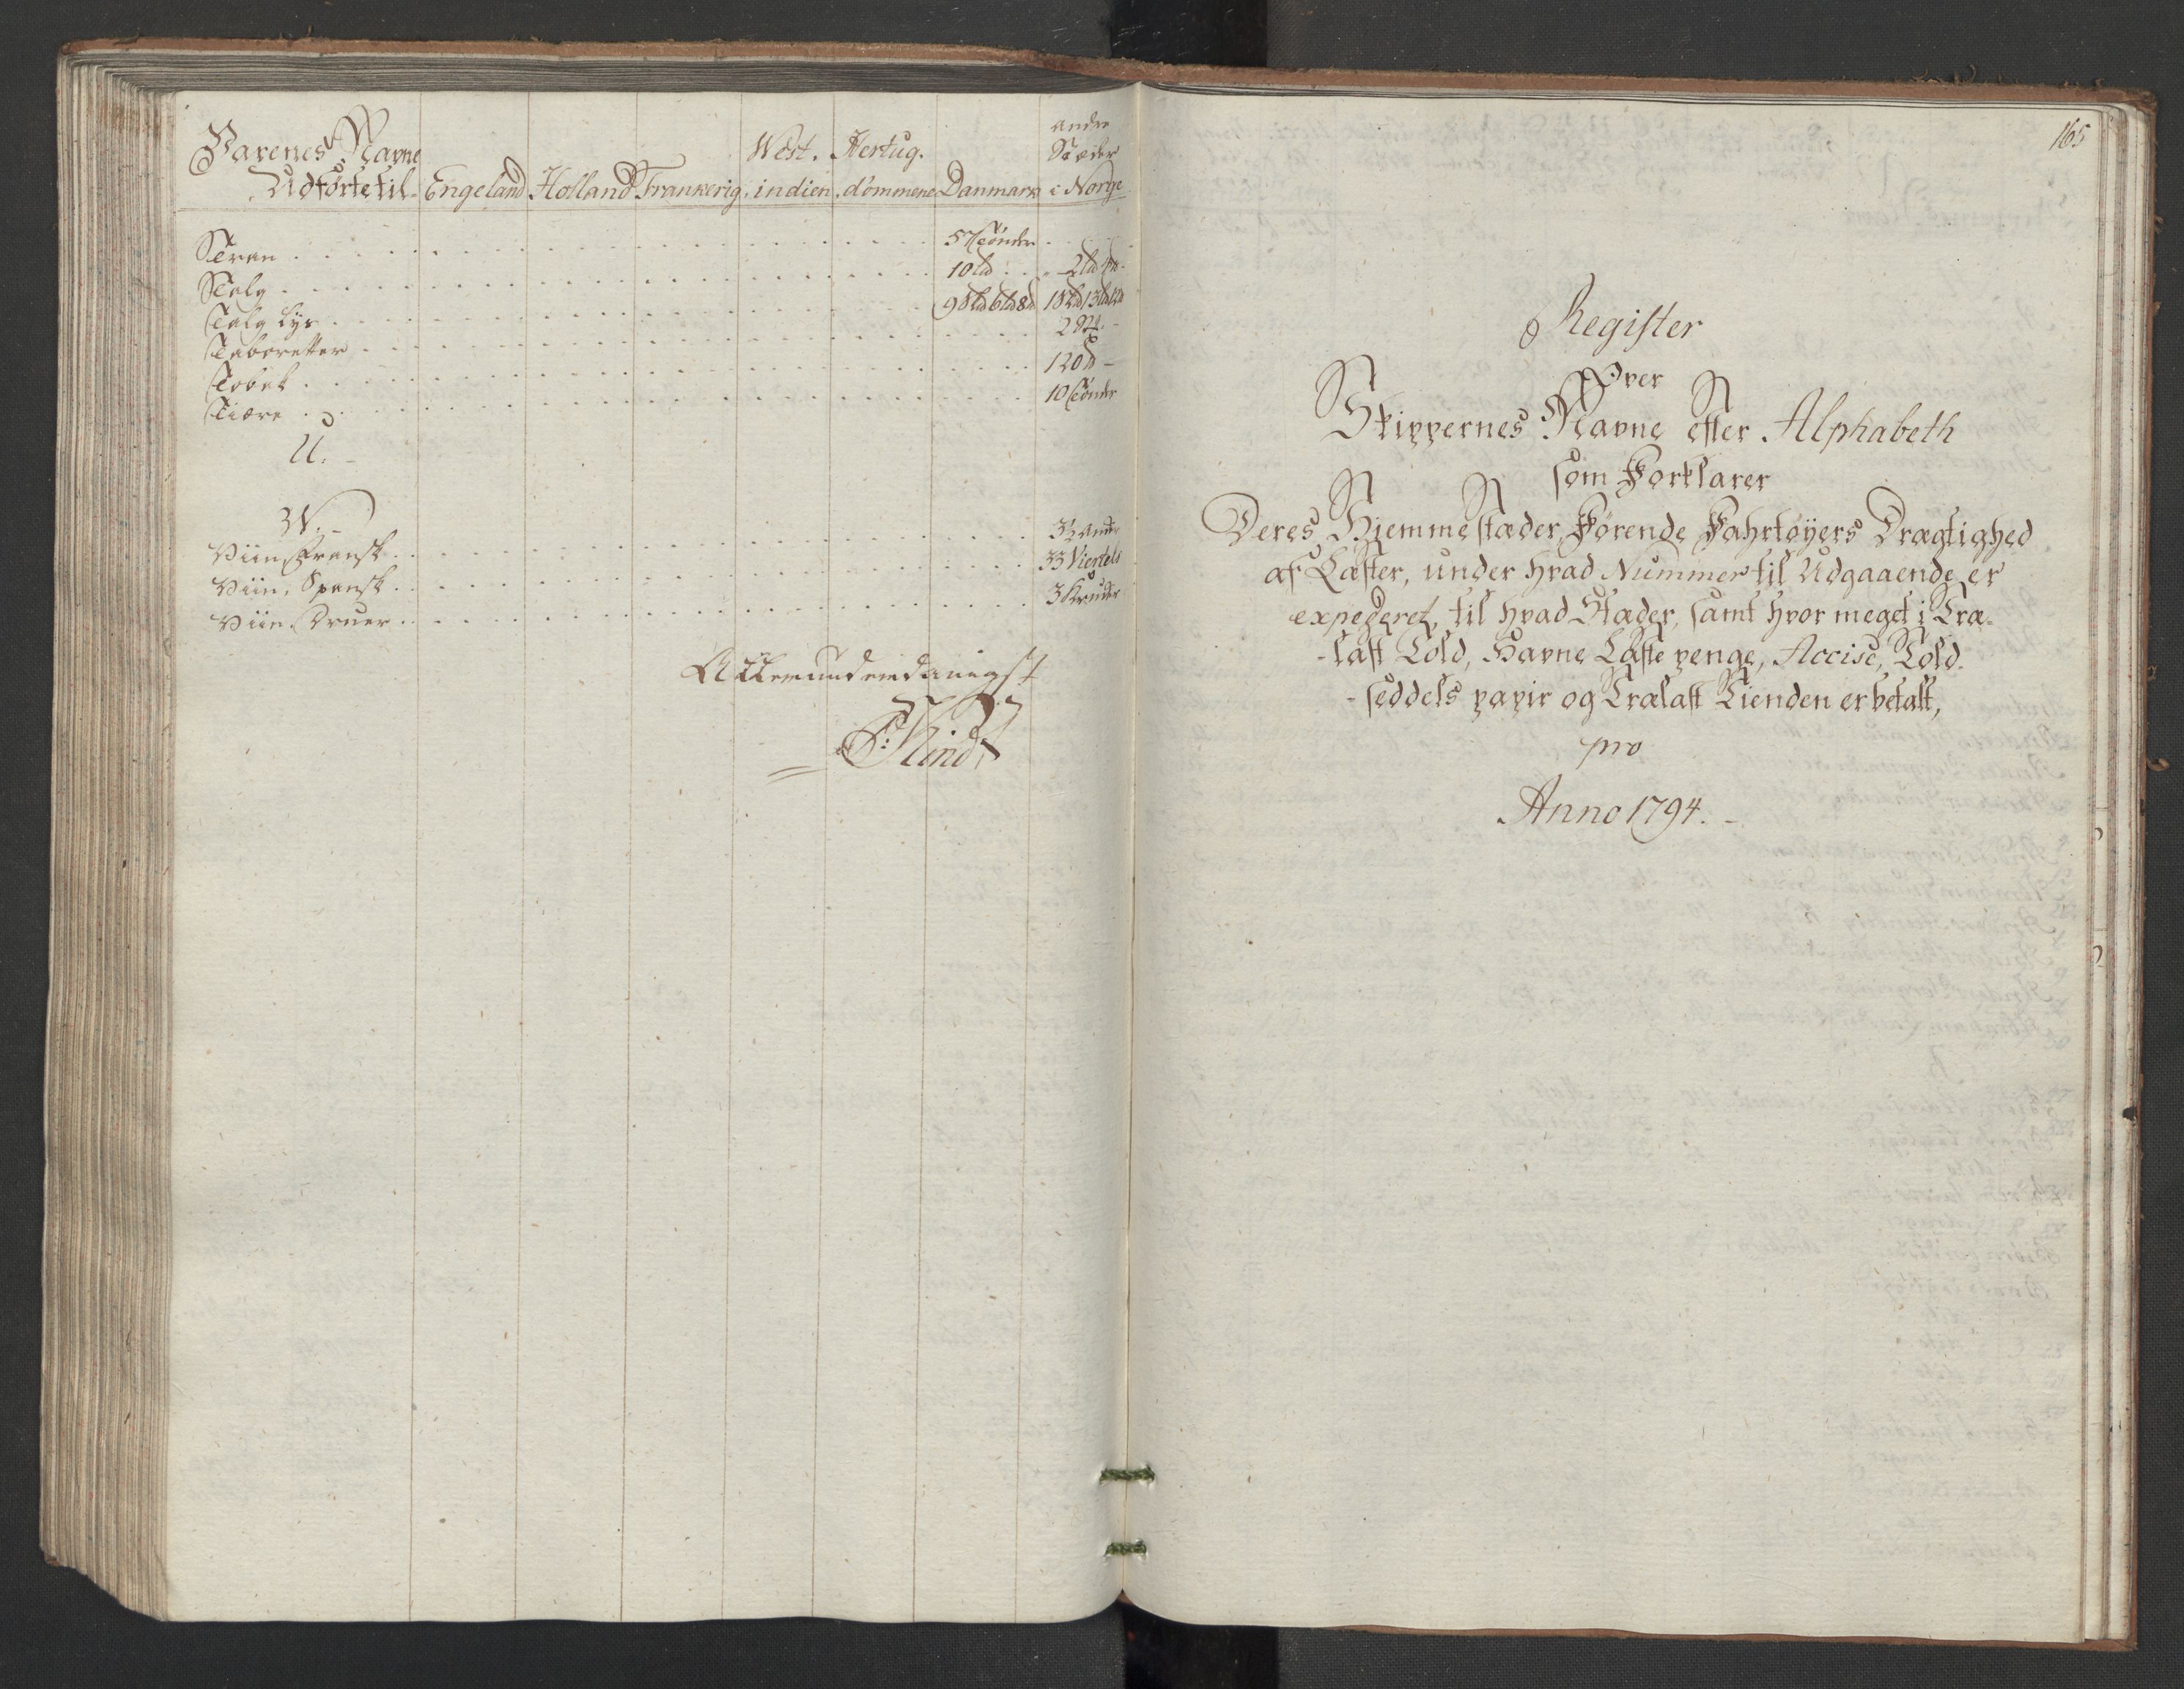 Varenes Navne
Udførte til. Engeland Holland Frankerig. West. indien. Hertug. dømmene Danmark andre Stæder i Norge
Tran . . . 57 Tønder
Talg . . . 10 Ld . . 2 Ld
Talg Lys . . .
Taboretter . . . 2
Tobak . . . 120 lb
Tiære . . . 10 Tønder
U.
W.
Viin, Fransk . . . 3½
Viin, Spansk . . . 33 Viertels
Viin. Druer . . . 3 Kruker
Allerunderdanigst
165
Register
Over
Skippernes Navne efter Alphabeth
som Forklarer
Deres Hiemmestæder, Førende Fahrtøyers Drægtighed
af Læster, under hvad Nummer til Udgaaende er
expederet, til hvad Stæder, samt hvor meget i Træ-
-last Told, Havne Læste penge, Accise, Told-
-seddels papir og Trælast Tienden er betalt,
pro
Anno 1794.